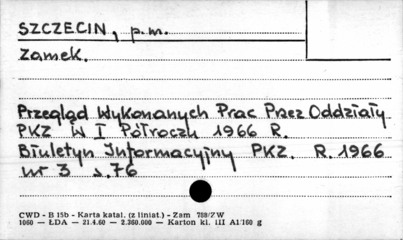 SZCZECIN, p.m.
Zamek.
Przegląd Wykonanych Prac Przez Oddziały
PKZ W I Półroczu 1966 R.
Biuletyn Informacyjny PKZ. R. 1966
nr 3 s. 76
CWD - B 15b - Karta katal. (z liniat.) - Zam 788/ZW
1060 — ŁDA — 21.4.60 — 2.360.000 — Karton kl. III A1/160 g